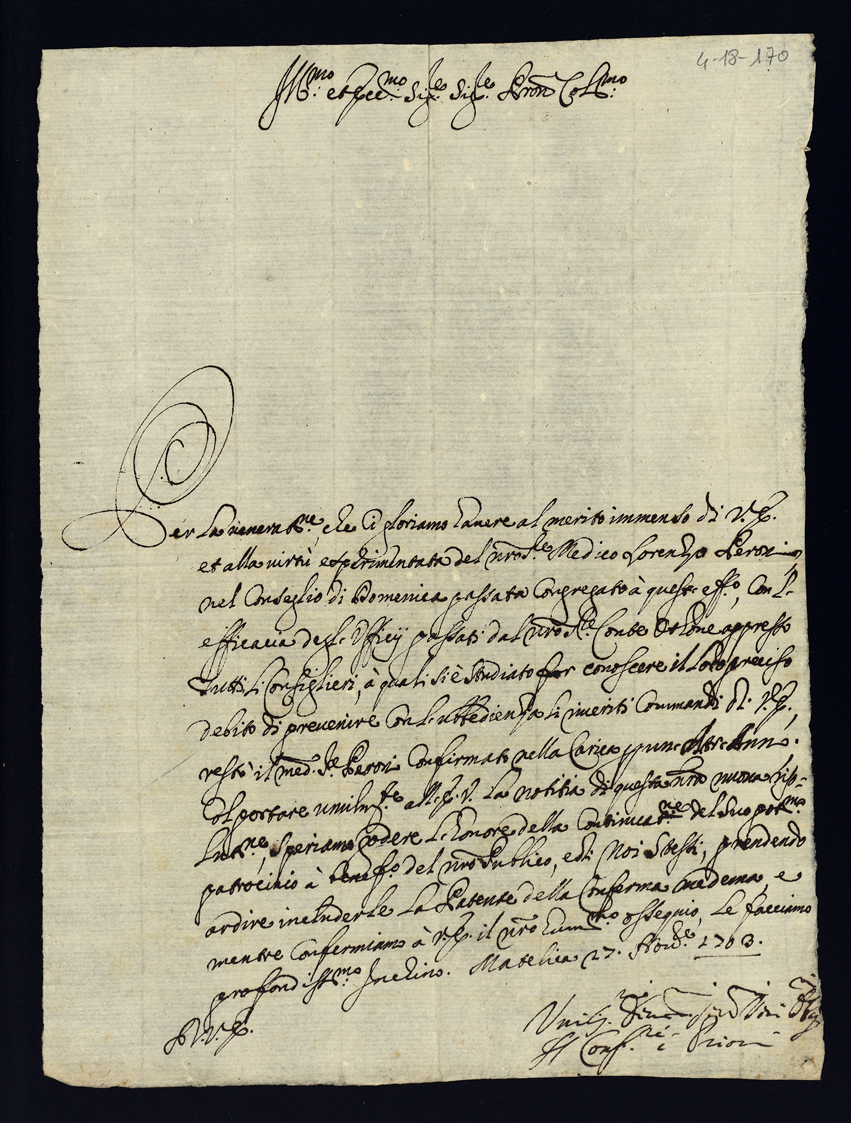 4-18-170
Ill:mo et Ecc:mo Sig:re Sig:re Pron Col:mo
Per la venerat:ne, che ci gloriamo havere al merito immenso di V.E.
et alla virtù esperimentata del nro S:re Medico Lorenzo Peroni,
nel Conseglio di Domenica passata Congregato à quest'eff:o, con l'
efficacia dell'Ufficij passati dal nro S:re Conte Ottone appresso
tutti li Consiglieri, à quali si è studiato far conoscere il loro preciso
debito di prevenire con l'ubbedienza li Commandi di V.E.,
restò il med:o S:re Peroni Confirmato nella Carica p un'Altr'Anno.
Col portare umilm:te all'E.V. la notitia di questa nra nuova
speriamo godere l'honore della Continuat:ne del suo pot:mo
patrocinio à benef:o del nro Publico, e di Noi Stessi, prendendo
ardire includerle la Patente della Conferma medema, e
mentre Confermiamo à V.E. il nro hum:mo ossequio, Le facciamo
profondiss:mo Inchino. Matelica 27. Nov:re 1703.
D.V.E.
Il Conf:re e Priori